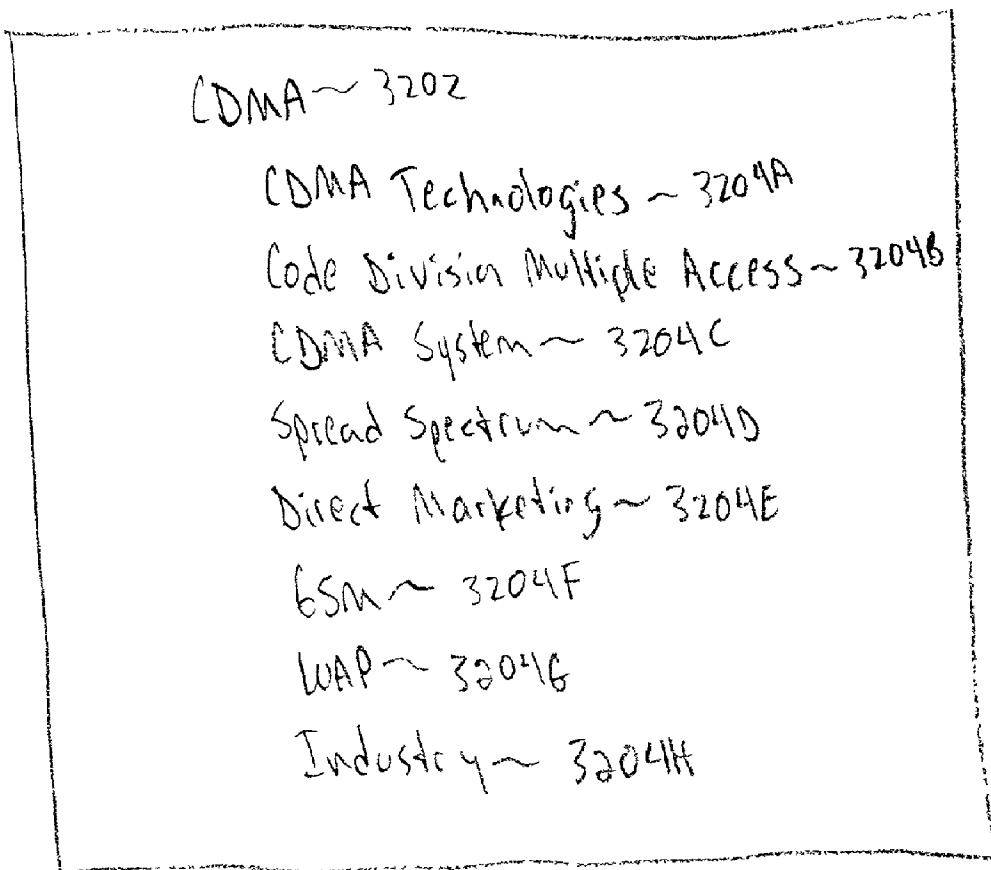 CDMA ~ 3202
CDMA Technologies ~ 3204A
Code Division Multiple Access ~ 3204B
CDMA System ~ 3204C
Spread Spectrum ~ 3204D
Direct Marketing ~ 3204E
GSM ~ 3204F
WAP ~ 3204G
Industry ~ 3204H